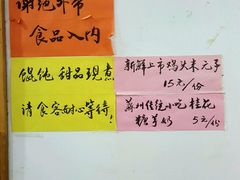 谢绝外带
食品入内
馄饨 甜品现煮
请食客耐心等待!
新鲜上市鸡头米元子
15元/份
苏州传统小吃 桂花
糖芋艿 5元/份